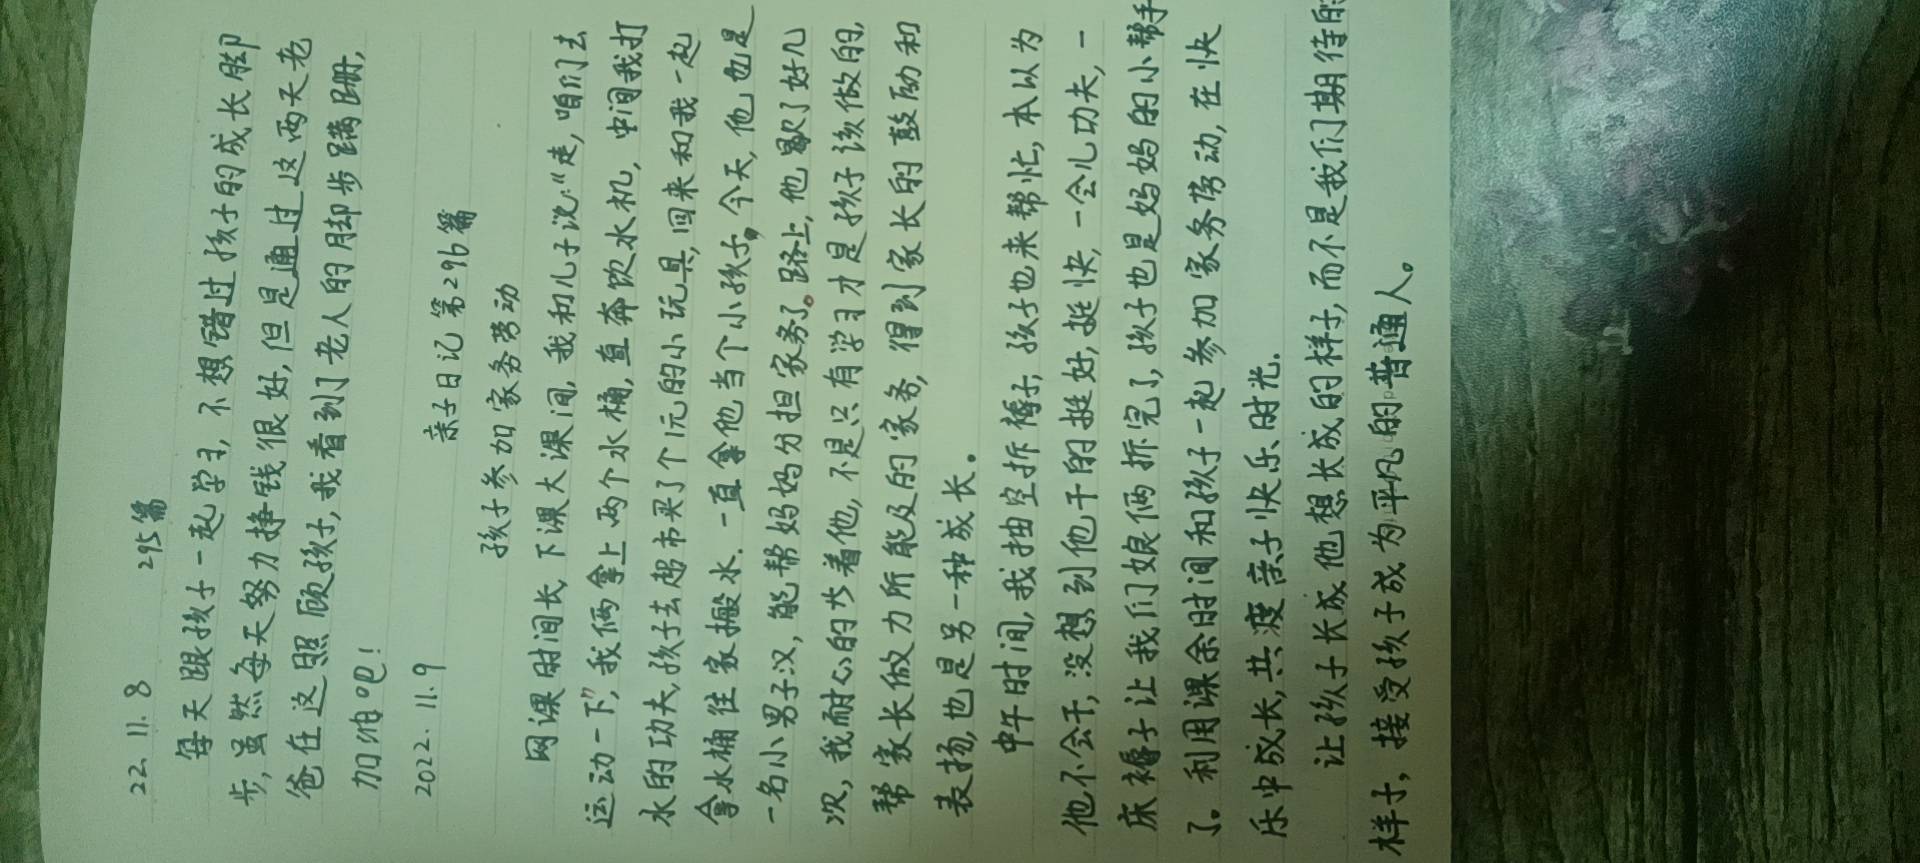 22.11.8 295篇
每天跟孩子一起学习，不想错过孩子的成长脚
步，虽然每天努力挣钱很好，但是通过这两天老
爸在这照顾孩子，我看到了老人的脚步蹒跚，
加油吧！
2022.11.9 亲子日记第296篇
孩子参加家务劳动
网课时间长，下课大课间，我和儿子说：“走，咱们去
运动一下”，我俩拿上两个水桶，直奔饮水机，中间我打
水的功夫，孩子去超市买了个1元的小玩具，回来和我一起
拿水桶往家搬水.一直拿他当个小孩子，今天，他也是
一名小男子汉，能帮妈妈分担家务了。路上，他歇了好几
次，我耐心的等着他，不是只有学习才是孩子该做的，
帮家长做力所能及的家务，得到家长的鼓励和
表扬，也是另一种成长。
中午时间，我抽空拆褥子，孩子也来帮忙，本以为
他不会干，没想到他干的挺好，挺快，一会儿功夫，一
床褥子让我们娘俩拆完了，孩子也是妈妈的小帮手
了。利用课余时间和孩子一起参加家务劳动，在快
乐中成长，共渡亲子快乐时光.
让孩子长成他想长成的样子，而不是我们期待的
样子，接受孩子成为平凡的普通人。